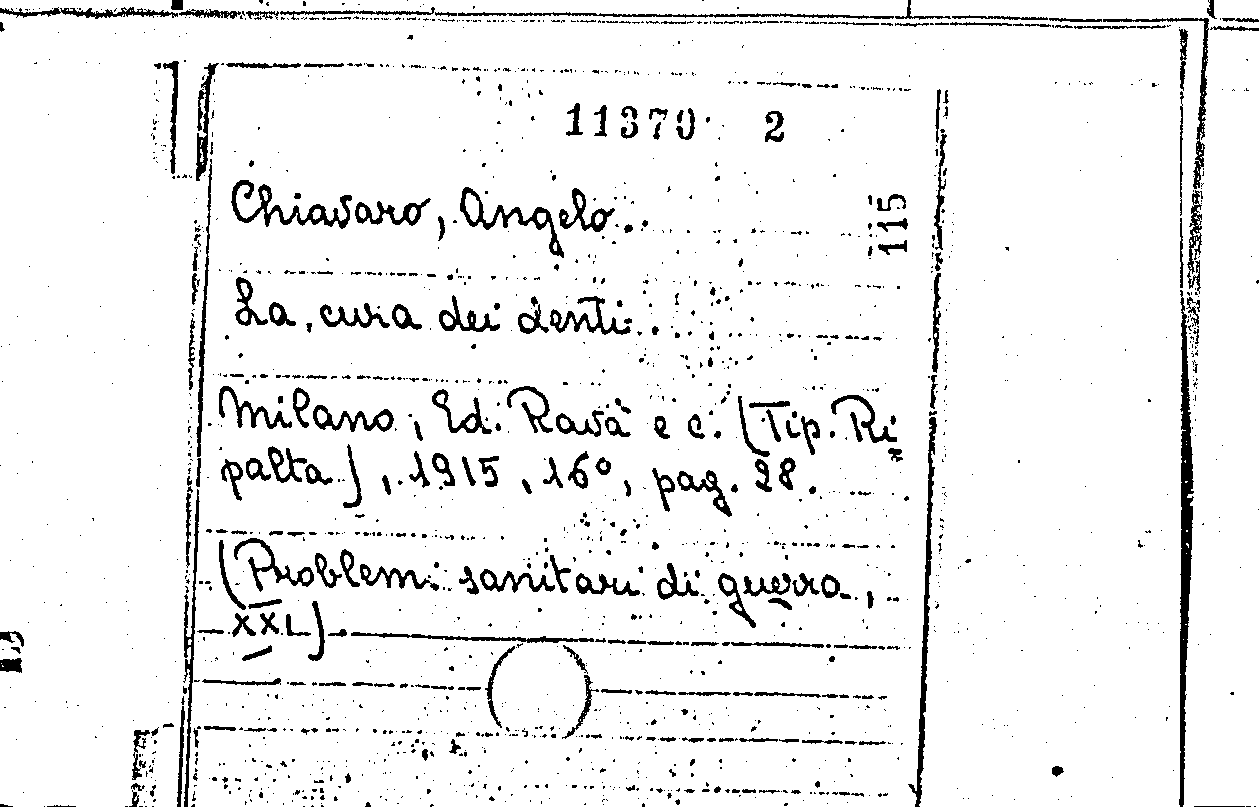 11370 2
115
Chiavaro, Angelo.
La cura dei denti.
Milano, Ed. Ravà e c. (Tip. Ri
palta), 1915, 16º, pag. 28.
(Problemi sanitari di guerra,
XXI)